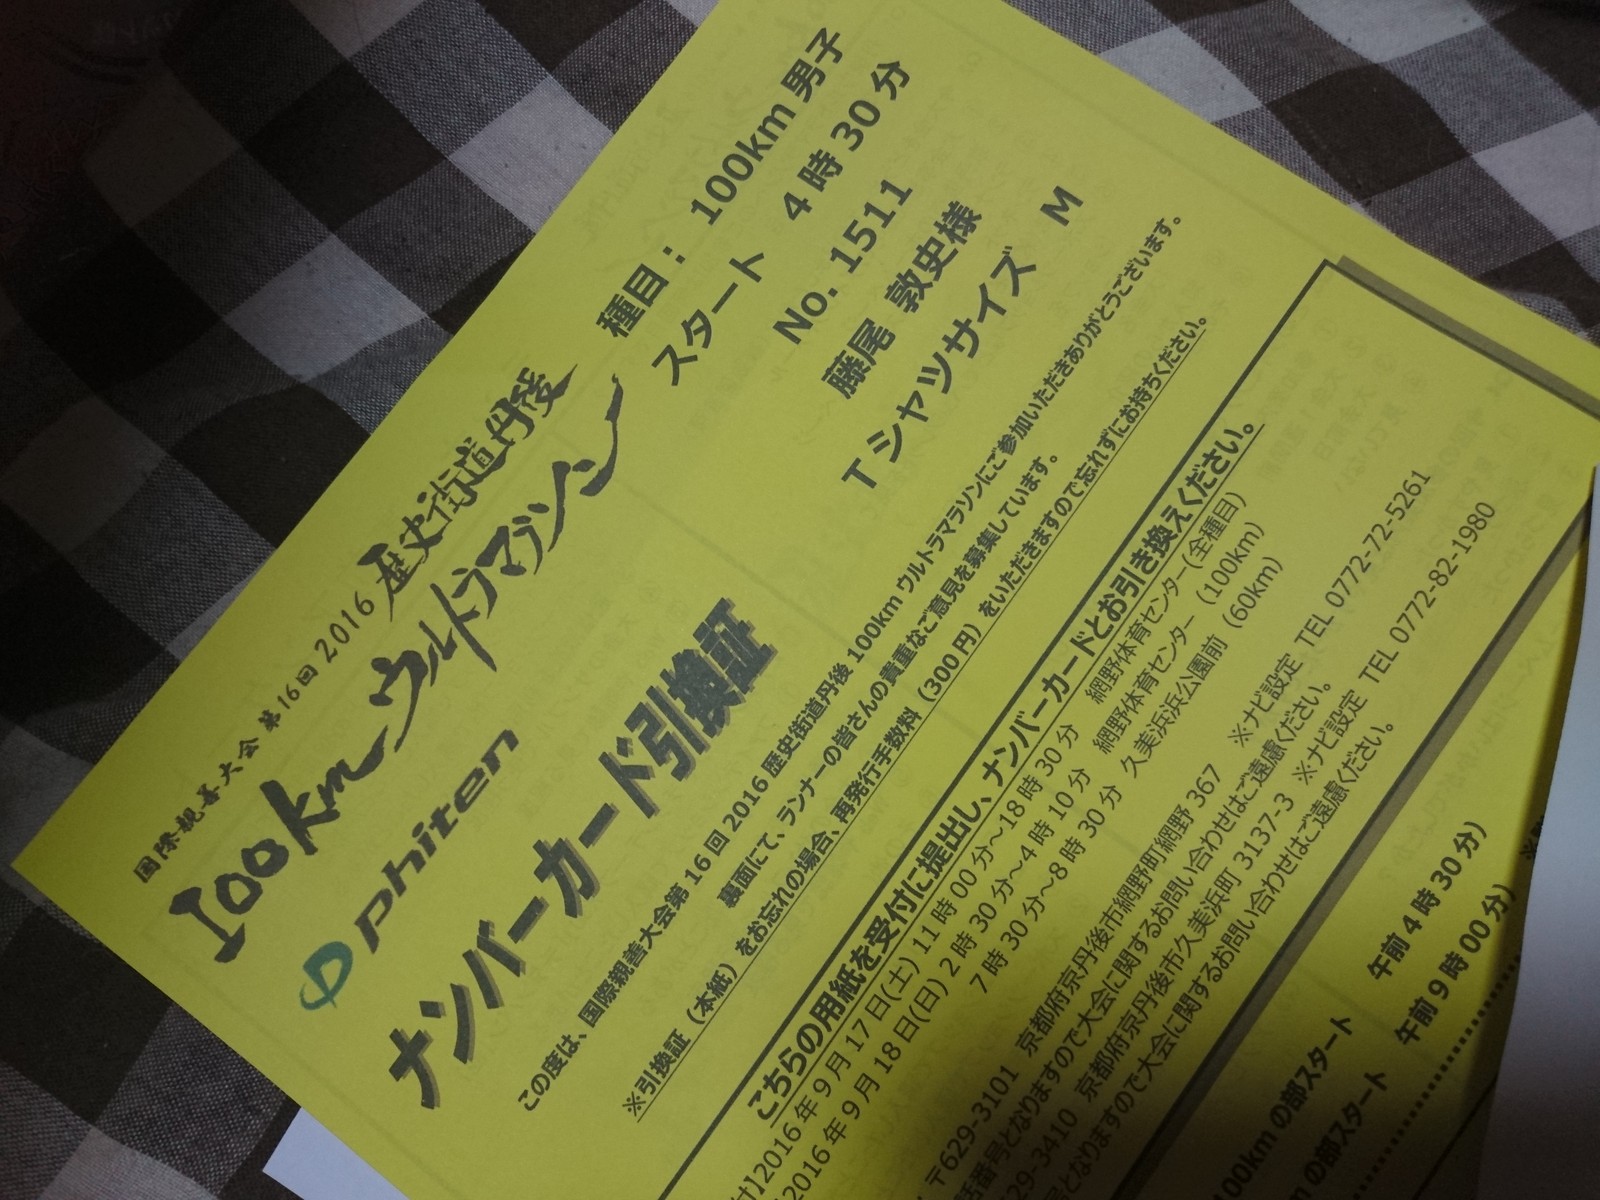 国際親善大会 第16回 2016 歴史街道丹後
100kmウルトラマラソン
phiten
ナンバーカード引換証
種目： 100km 男子
スタート 4時30分
No. 1511
藤尾 敦史様
Tシャツサイズ M
この度は、国際親善大会第16回 2016 歴史街道丹後 100km ウルトラマラソンにご参加いただきありがとうございます。
裏面にて、ランナーの皆さんの貴重なご意見を募集しています。
※引換証（本紙）をお忘れの場合、再発行手数料（300円）をいただきますので忘れずにお持ちください。
こちらの用紙を受付に提出し、ナンバーカードとお引き換えください。
付】2016年9月17日(土) 11時00分～18時30分 網野体育センター(全種目)
2016年9月18日(日) 2時30分～4時10分 網野体育センター（100km）
7時30分～8時30分 久美浜浜公園前（60km）
〒629-3101 京都府京丹後市網野町網野367 ※ナビ設定 TEL 0772-72-5261
話番号となりますので大会に関するお問い合わせはご遠慮ください。
29-3410 京都府京丹後市久美浜町3137-3 ※ナビ設定 TEL 0772-82-1980
号となりますので大会に関するお問い合わせはご遠慮ください。
00kmの部スタート 午前4時30分）
mの部スタート 午前9時00分）